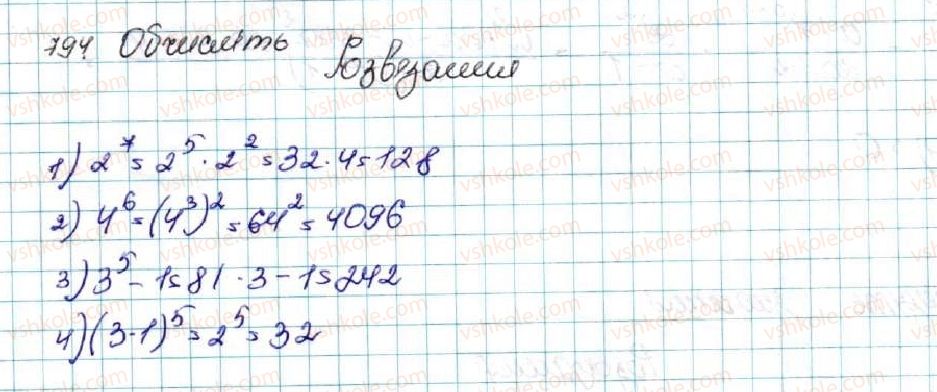 794. Обчисліть
Розвезання
1) 2⁷ = 2⁵ · 2² = 32 · 4 = 128
2) 4⁶ = (4³)² = 64² = 4096
3) 3⁵ - 1 = 81 · 3 - 1 = 242
4) (3-1)⁵ = 2⁵ = 32